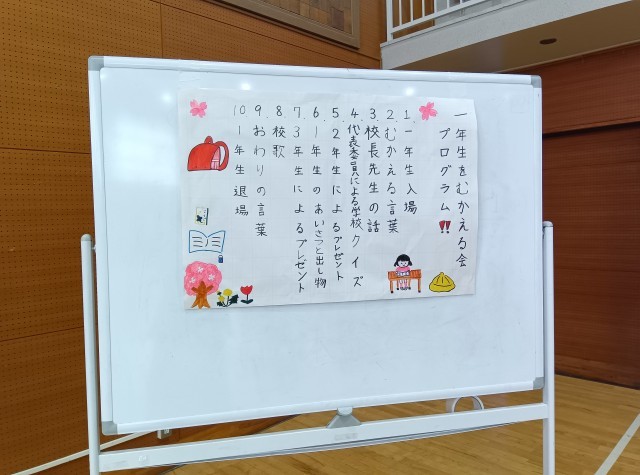 一年生をむかえる会
プログラム!!
1 一年生入場
2 むかえる言葉
3 校長先生の話
4 代表委員による学校クイズ
5 2年生によるプレゼント
6 1年生のあいさつと出し物
7 3年生によるプレゼント
8 校歌
9 おわりの言葉
10 1年生退場